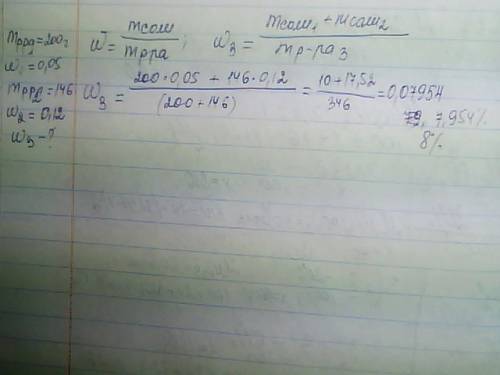 mрра1=200г
w1=0,05
mрра2=146
w2=0,12
w3-?
w = mсоли / mрра ; w3 = mсоли1 + mсоли2 / mр-ра3
w3 = 200·0,05 + 146·0,12 / (200+146) = 10+17,52 / 346 = 0,07954
7,954%
8%